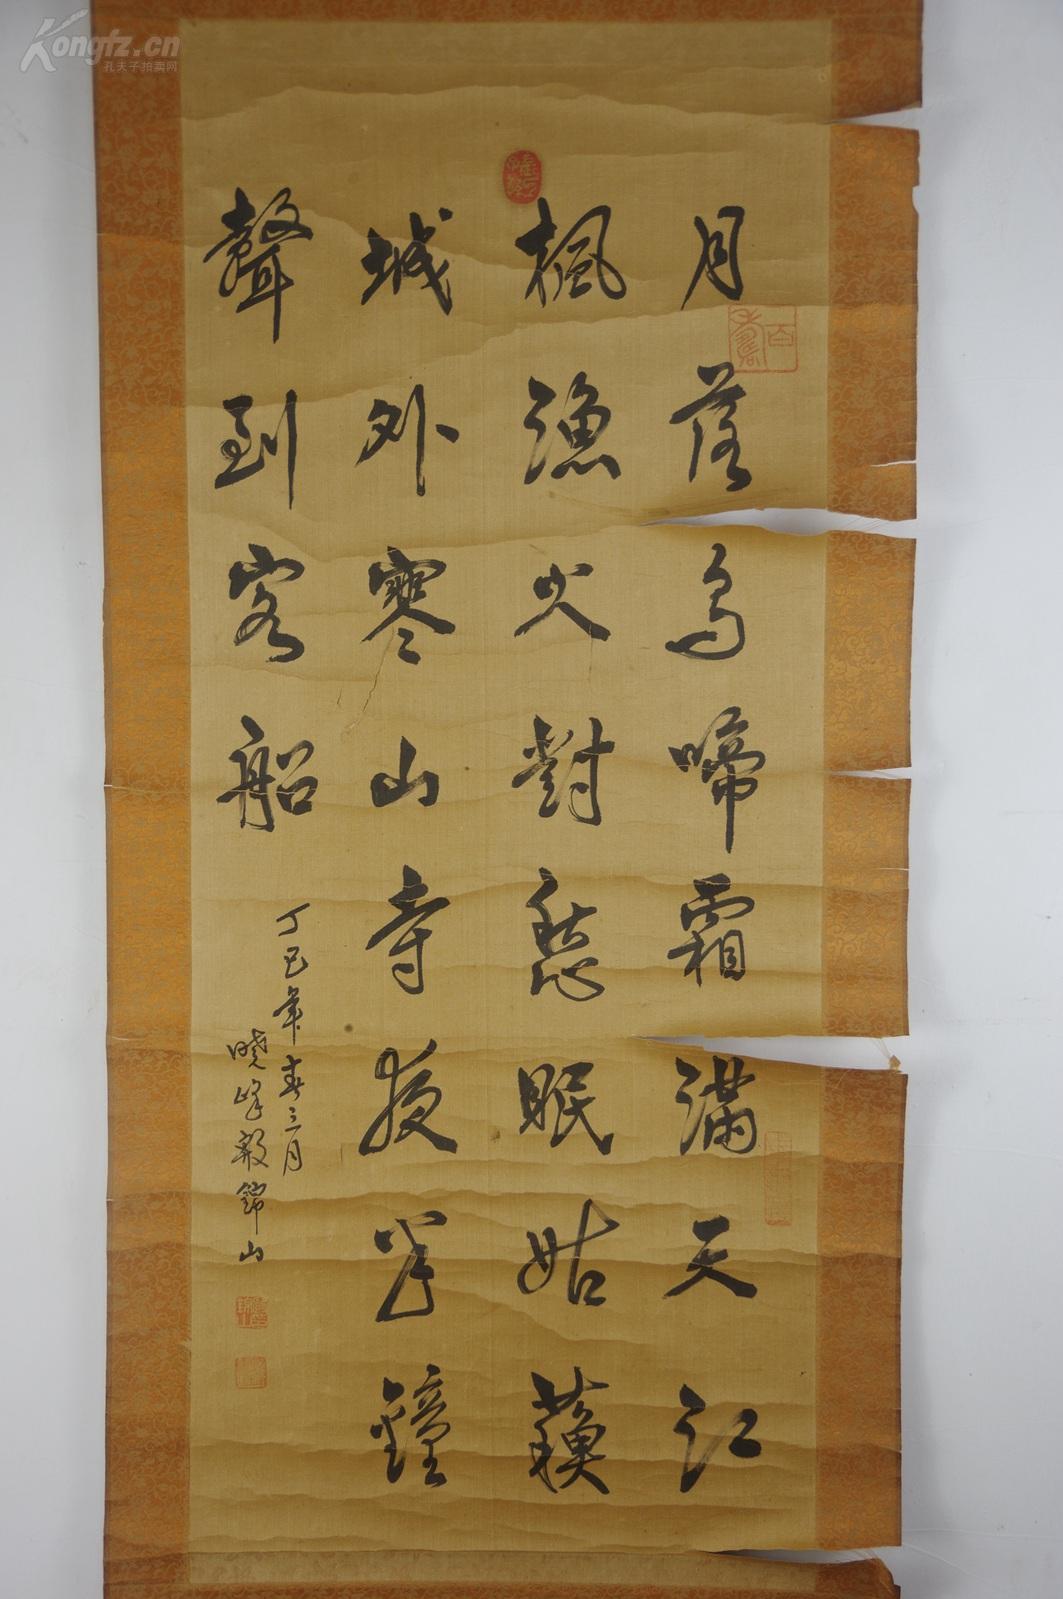 月落烏啼霜滿天江
楓漁火對愁眠姑蘇
城外寒山寺夜半鐘
聲到客船
丁巳年春三月
曉峰敬錦山
Kongfz.cn
孔夫子拍卖网